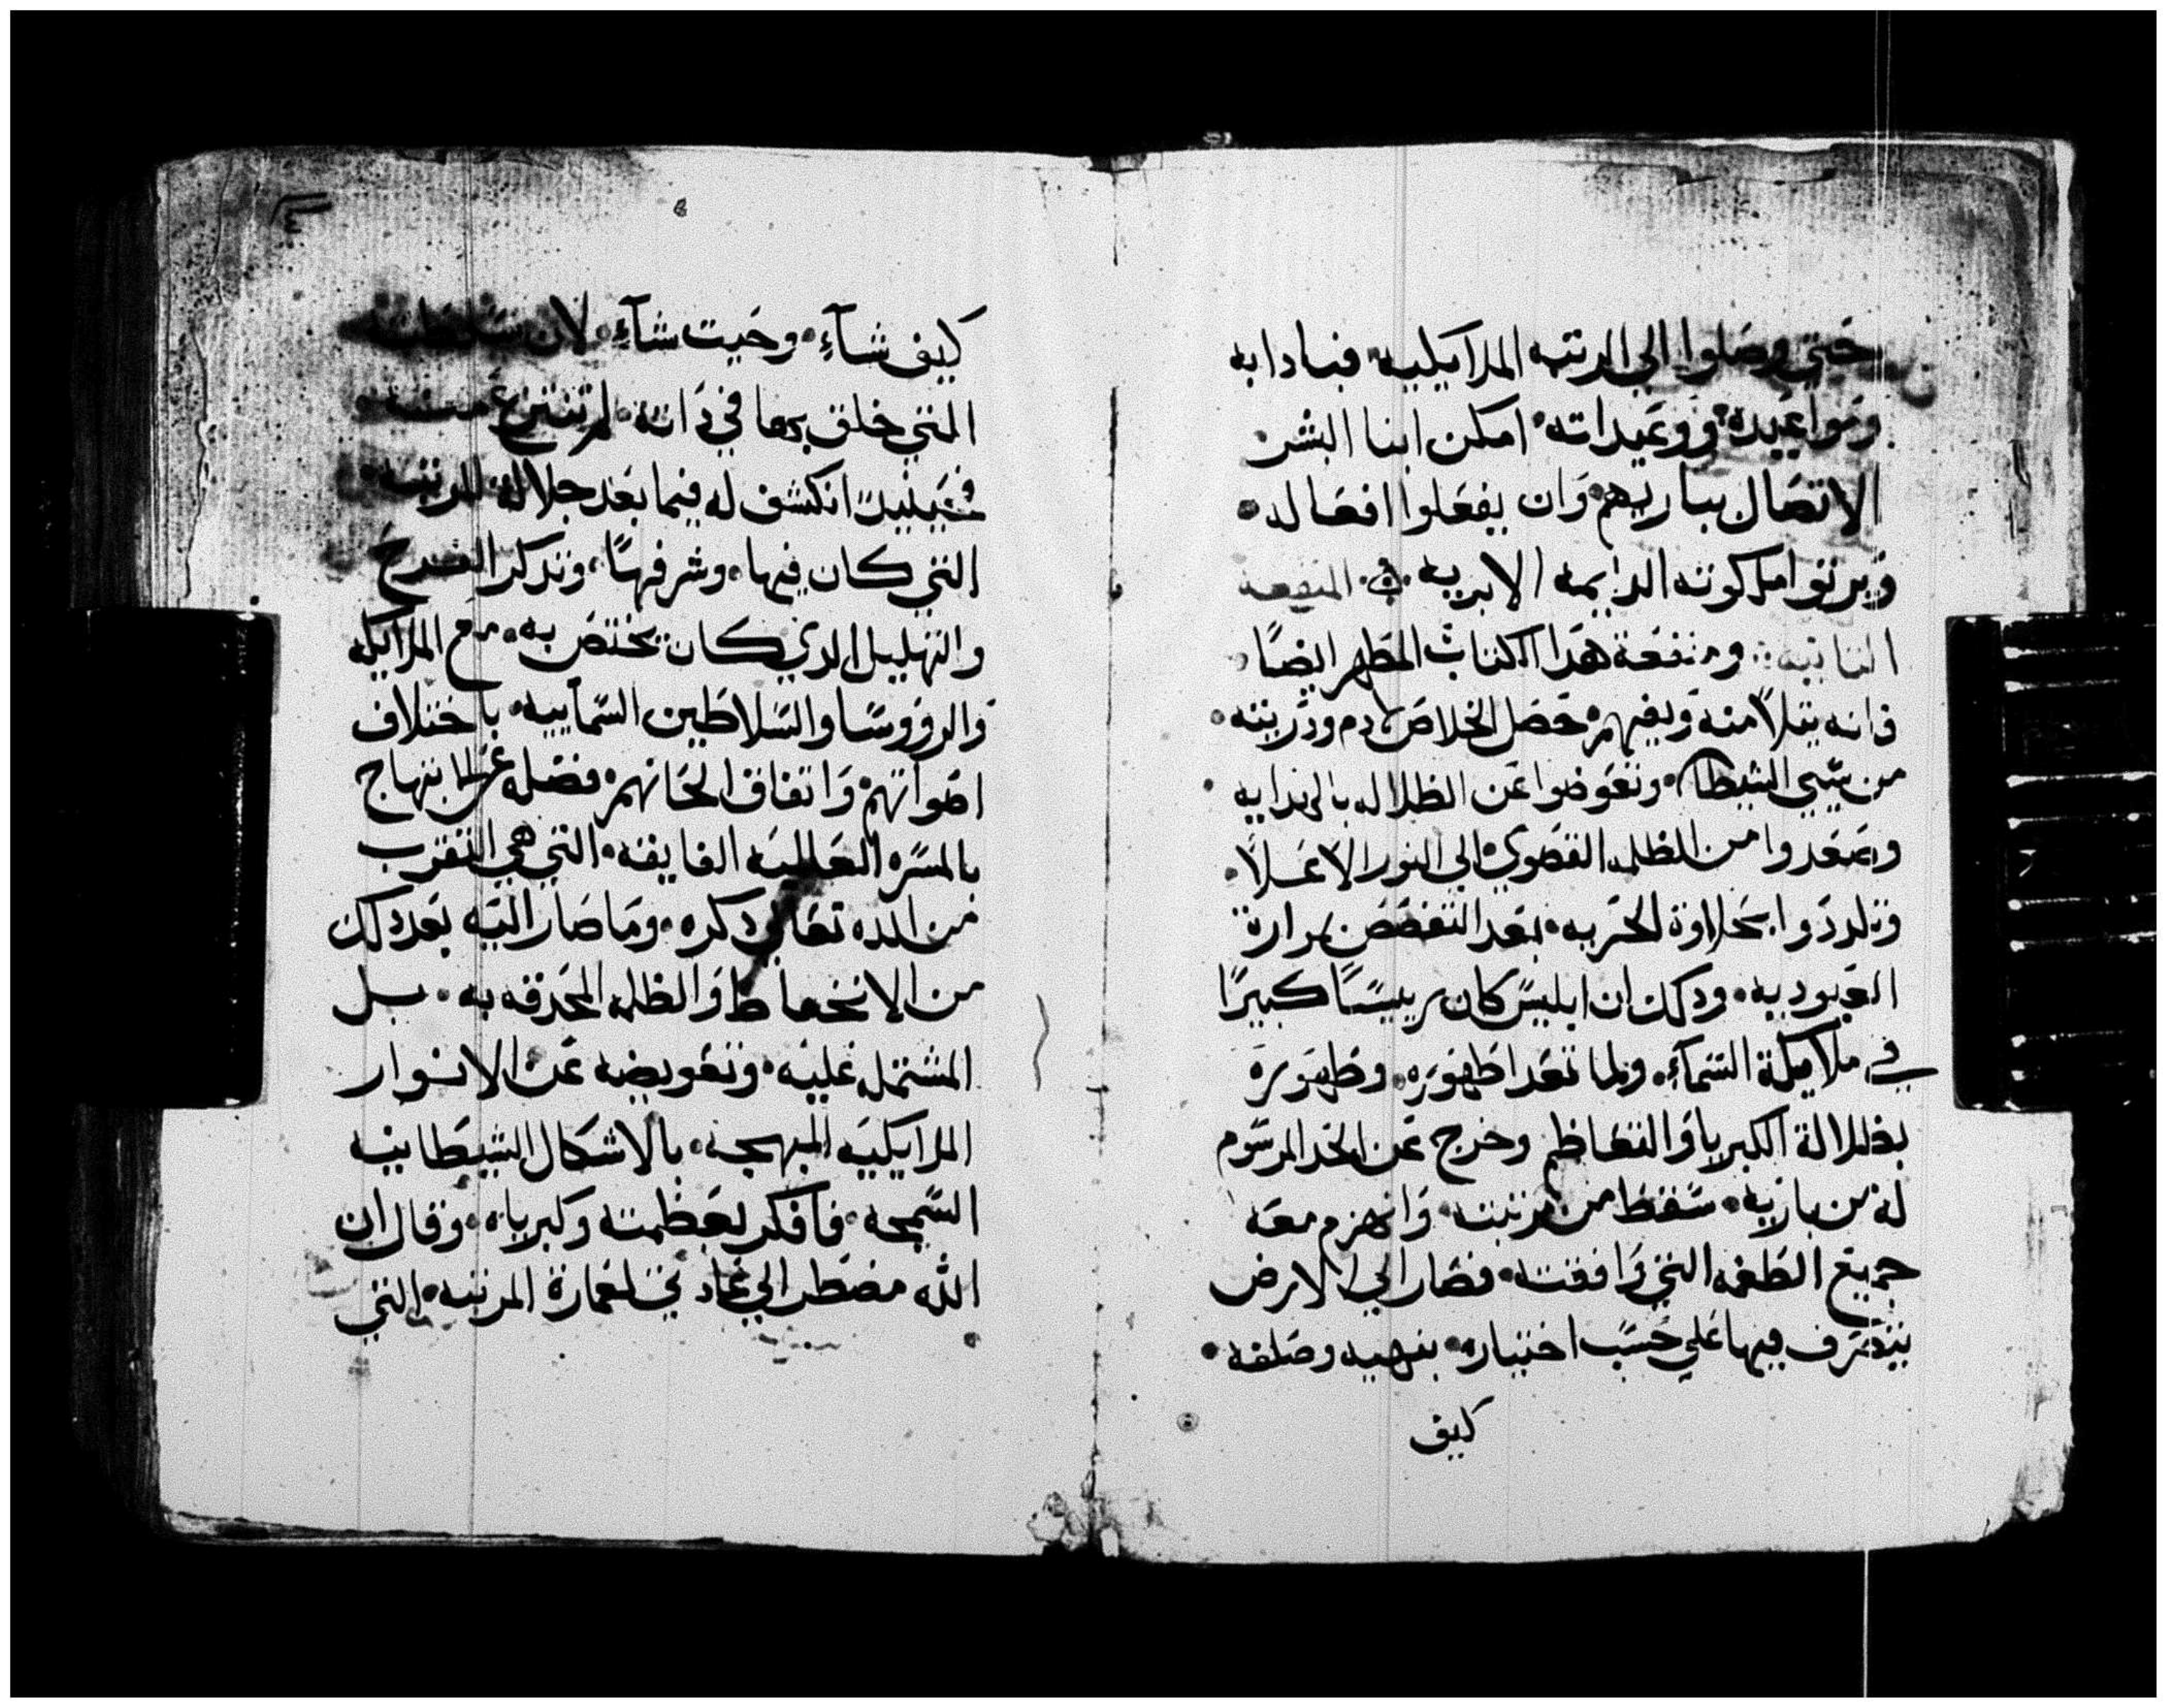 حتي وصلوا الي الرتبه الملايكيه • فباداابه
ومواعيده • ووعيداته • امكن ابنا البشر
الاتصال بباريهم • وان يفعلوا افعاله •
ويرتوا ملكوته الدايمه الابديه • المنفعه
الثانيه • ومنفعة هدا الكتاب المطهر ايضًا •
فانه بتلا منه ويفهم • حصل الخلاص لادم ودريته •
من سبي الشيطان • وتعوضوا عن الظلاله بالهدايه •
وصعدوا من الظلمه القصوي • الي النور الاعلا •
وتلددوا بحلاوة الحريه • بعد التغصص بمرارة
العبوديه • ودلك ان ابليس كان رييسًا كبيرًا
في ملايكة السماء • ولما تعدا طهوره • وطهوره
بظلالة الكبريا والتعاظم وخرج عن الحد المرسوم
له من باريه • سقط من مرتبته • وانهزم معه
جميع الطغمه التي وافقته • فصار الي الارض
يتصرف فيها علي حسب اختياره • بنهيه وصلفه •
كيف
كيف شاء • وحيت شاء • لان سلطنته
التي خلق بها في داته • لم تنتزع منه •
فحينيدٍ انكشف له فيما بعد جلالة المرتبه •
التي كان فيها • وشرفها • وتدكر الفرح
والتهليل الدي كان يختص به • مع الملايكه
والرووسا والسلاطين السماييه • باختلاف
اصواتهم • واتفاق الحانهم • فضله عن الابتهاج
بالمسره العاليه الفايقه • التي هي التقرب
من الله تعالي دكره • وما صار اليه بعد دلك
من الانخفاط والظلمه المحدقه به • بل
المشتمله عليه • وتعويضه عن الانوار
الملايكيه المبهجه • بالاشكال الشيطانيه
السمجه • فافكر لعظمته وكبرياه • وقال ان
الله مضطر الي عادتي لعمارة المرتبه • التي